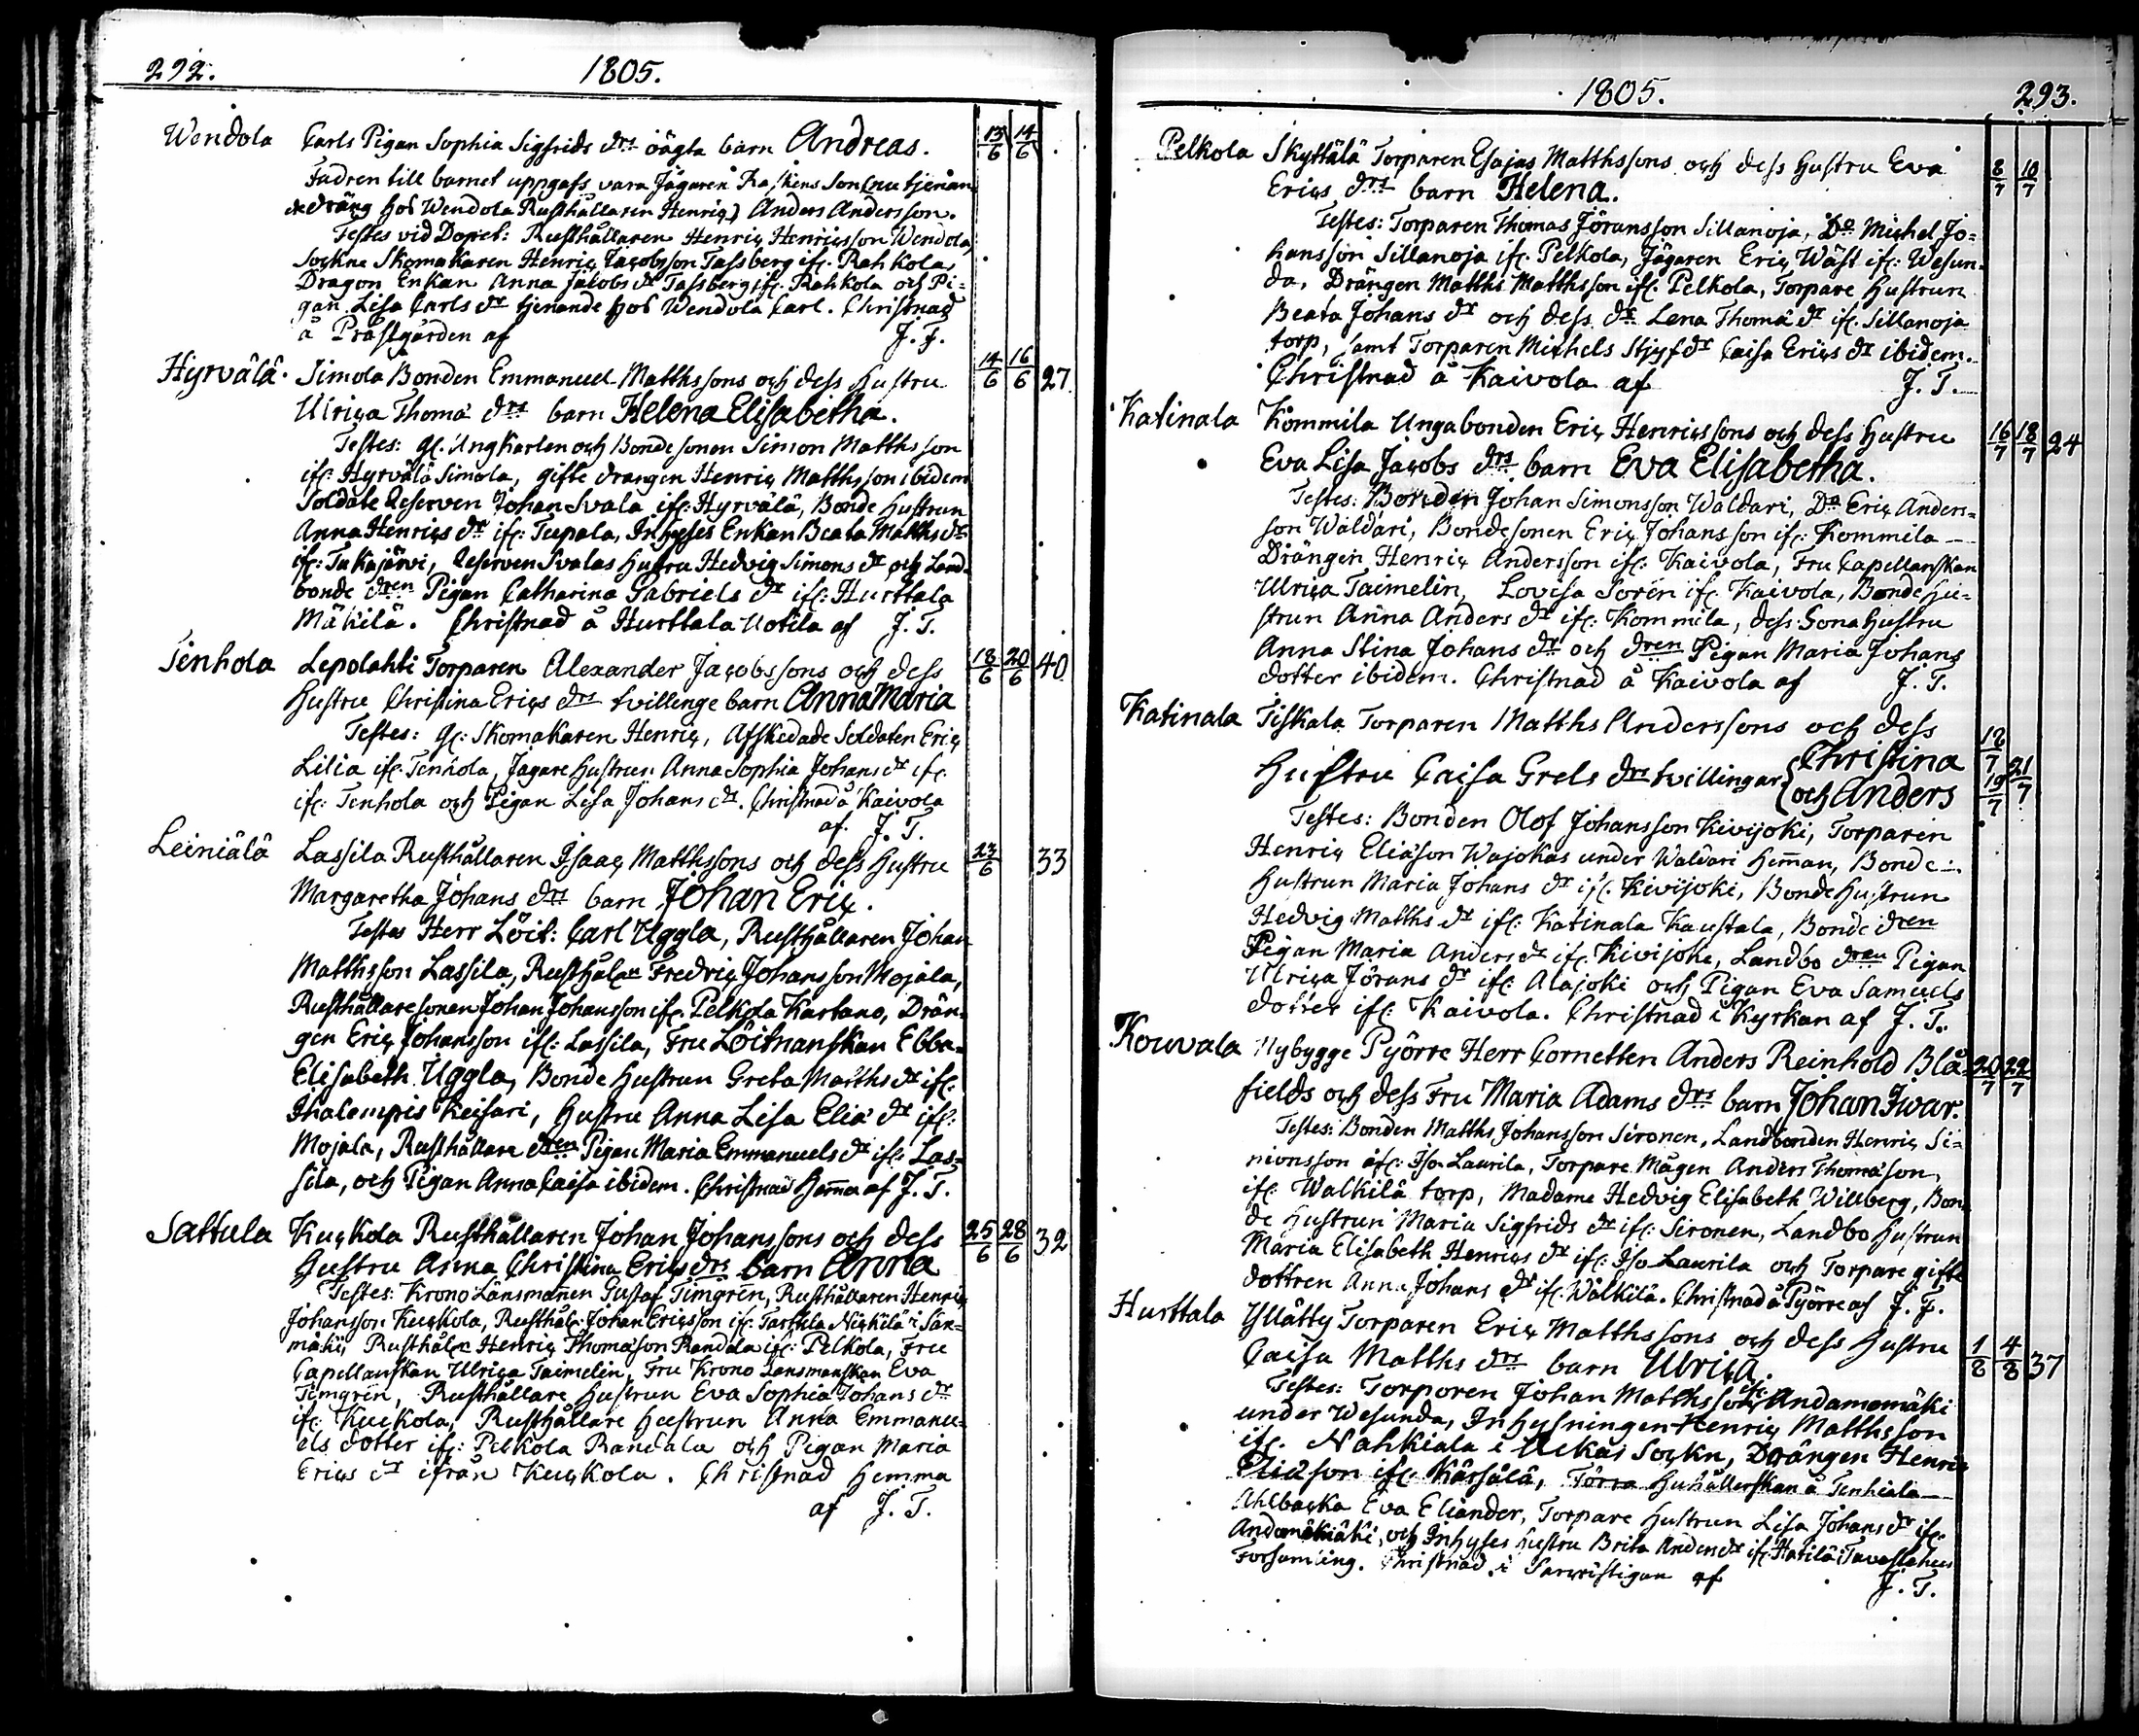 292.
1805.
Wendola Carls Pigan Sophia Sigfrids drs oägta barn Andreas. 13/6 14/6
Fadren till barnet uppgafs vara Jägaren Raskens Son (nu tjenan
de dräng hos Wendola Rusthållaren Henric) Anders Andersson.
Testes vid Dopet: Rusthållaren Henric Henricsson Wendola,
Sockne Skomakaren Henric Jacobsson Tassberg ifr. Rahkola,
Dragon Enkan Anna Jacobs dr Tassberg ifr. Rahkola och Pi=
gan Lisa Carls dr tjenande hos Wendola Carl. Christnad
å Prästgården af J. T.
Hyrvälä. Simola Bonden Emmanuel Matthssons och dess hustru 14/6 16/6 27
Ulrica Thomä drs barn Helena Elisabetha.
Testes: gl. Ungkarlen och Bondesonen Simon Matthsson
ifr. Hyrvälä Simola, gifte drängen Henric Matthsson ibidem
Soldate Reserven Johan Svala ifr: Hyrvälä, Bonde hustrun
Anna Henrics dr ifr: Teepala, Inhyses Enkan Beata Matths dr
ifr: Tukajärvi, Reserven Svalas hustru Hedvig Simons dr och Land=
bonde dren Pigan Catharina Gabriels dr ifr: Hurttala
Mäkilä. Christnad å Hurttala Uotila af J. T.
Tenhola Lepolahti Torparen Alexander Jacobssons och dess 18/6 20/6 40
Hustru Christina Erics drs tvillinge barn Anna Maria
Testes: gl: Skomakaren Henric, Afskedade Soldaten Eric
Lilia ifr. Tenhola, Jägare hustrun Anna Sophia Johans dr ifr.
ifr: Tenhola och Pigan Lisa Johans dr. Christnad å Kaivola
af J. T.
Leiniälä Lassila Rusthållaren Isaac Matthssons och dess hustru 23/6 33
Margaretha Johans drs barn Johan Eric.
Testes Herr Löit: Carl Uggla, Rusthållaren Johan
Matthsson Lassila, Rusthålarn Fredric Johansson Mojala,
Rusthållaresonen Johan Johansson ifr. Pelkola Kartano, Drän=
gen Eric Johansson ifr: Lassila, Fru Löitnanskan Ebba
Elisabeth Uggla, Bonde hustrun Greta Matths dr ifr:
Ihalempis Keisari, hustru Anna Lisa Eliä dr ifr:
Mojala, Rusthållare dren Pigan Maria Emmanuels dr ifr: Las=
sila, och Pigan Anna Caisa ibidem. Christnad hemma af J. T.
Sattula Kuckola Rusthållaren Johan Johanssons och dess 25/6 28/6 32
Hustru Anna Christina Erics drs barn Anna
Testes: Krono Länsmannen Gustaf Timgren, Rusthållaren Henric
Johansson Kuckola, Rusthål: Johan Ericsson ifr. Tarttila Nickilä i Sär=
mäki, Rusthålln Henric Thomäson Randala ifr: Pelkola, Fru
Capellanskan Ulrica Taimelin, Fru Krono Länsmanskan Eva
Timgrin, Rusthållare Hustrun Eva Sophia Johans dr
ifr. Kuckola, Rusthållare hustrun Anna Emmanu=
els dotter ifr: Pelkola Randala och Pigan Maria
Erics dr ifrån Kuckola. Christnad hemma
af J. T.
1805.
293.
Pelkola Skyttälä Torparen Esajas Matthssons och dess Hustru Eva 8/7 10/7
Erics drs barn Helena.
Testes: Torparen Thomas Jöransson Sillanoja, Do Michel Jo=
hansson Sillanoja ifr. Pelkola, Jägaren Eric Wäst ifr: Wesun=
da, Drängen Matths Matthsson ifr. Pelkola, Torpare Hustrun
Beata Johans dr och dess dr Lena Thomä dr ifr. Sillanoja
torp, samt Torparen Michels Stjyfdr Caisa Erics dr ibidem.
Christnad å Kaivola af J. T.
Katinala Kommila Ungabonden Eric Henricssons och dess Hustru 16/7 18/7 24
Eva Lisa Jacobs drs barn Eva Elisabetha.
Testes: Bonden Johan Simonsson Waldari, Do Eric Anders=
son Waldari, Bondesonen Eric Johansson ifr: Kommila
Drängen Henric Andersson ifr: Kaivola, Fru Capellanskan
Ulrica Taimelin, Lovisa Soren ifr. Kaivola, Bonde Hu=
strun Anna Anders dr ifr: Kommila, dess Sona Hustru
Anna Stina Johans dr och dren Pigan Maria Johans
dotter ibidem. Christnad å Kaivola af J. T.
Katinala Tiskala Torparen Matths Anderssons och dess
Hustru Caisa Grels drs tvillingar Christina 18/7
och Anders 19/7 21/7
Testes: Bonden Olof Johansson Kivijoki, Torparen
Henric Eliäson Wajokas under Waldari Heman, Bonde
hustrun Maria Johans dr ifr. Kivijoki, Bonde Hustrun
Hedvig Matths dr ifr: Katinala Kaustala, Bonde dren
Pigan Maria Anders dr ifr. Kivijoki, Landbo dren Pigan
Ulrica Jörans dr ifr: Alajoki och Pigan Eva Samuels
dotter ifr: Kaivola. Christnad i Kyrkan af J. T.
Kouvala Nybygge Pyörre Herr Cornetten Anders Reinhold Blå= 20/7 22/7
fields och dess Fru Maria Adams drs barn Johan Iwar.
Testes: Bonden Matths Johansson Sironen, Landbonden Henric Si=
monsson ifr: Iso Laurila, Torpare Mågen Anders Thomäson
ifr: Walkilä torp, Madame Hedvig Elisabeth Willberg, Bon=
de Hustrun Maria Sigfrids dr ifr: Sironen, Landbo hustrun
Maria Elisabeth Henrics dr ifr: Iso Laurila och Torpare gifte
dottren Anna Johans dr ifr: Wälkilä. Christnad å Pyörre af J. T.
Hurttala Yllätty Torparen Eric Matthssons och dess Hustru 1/8 4/8 37
Caisa Matths drs barn Ulrica.
Testes: Torparen Johan Matthsson ifr: Andamomäki
under Wesunda, Inhysningen Henric Matthsson
ifr. Nahkiala i Akas Sockn, Drängen Henric
Eliäson ifr: Kärsälä, Förra Hushållerskan å Tenhiala
Ahlbacka Eva Eliander, Torpare Hustrun Lisa Johans dr ifr.
och Inhyses hustru Brita Anders dr ifr: Hatilä i Tavastehus
Forsamling. Christnad i af J. T.